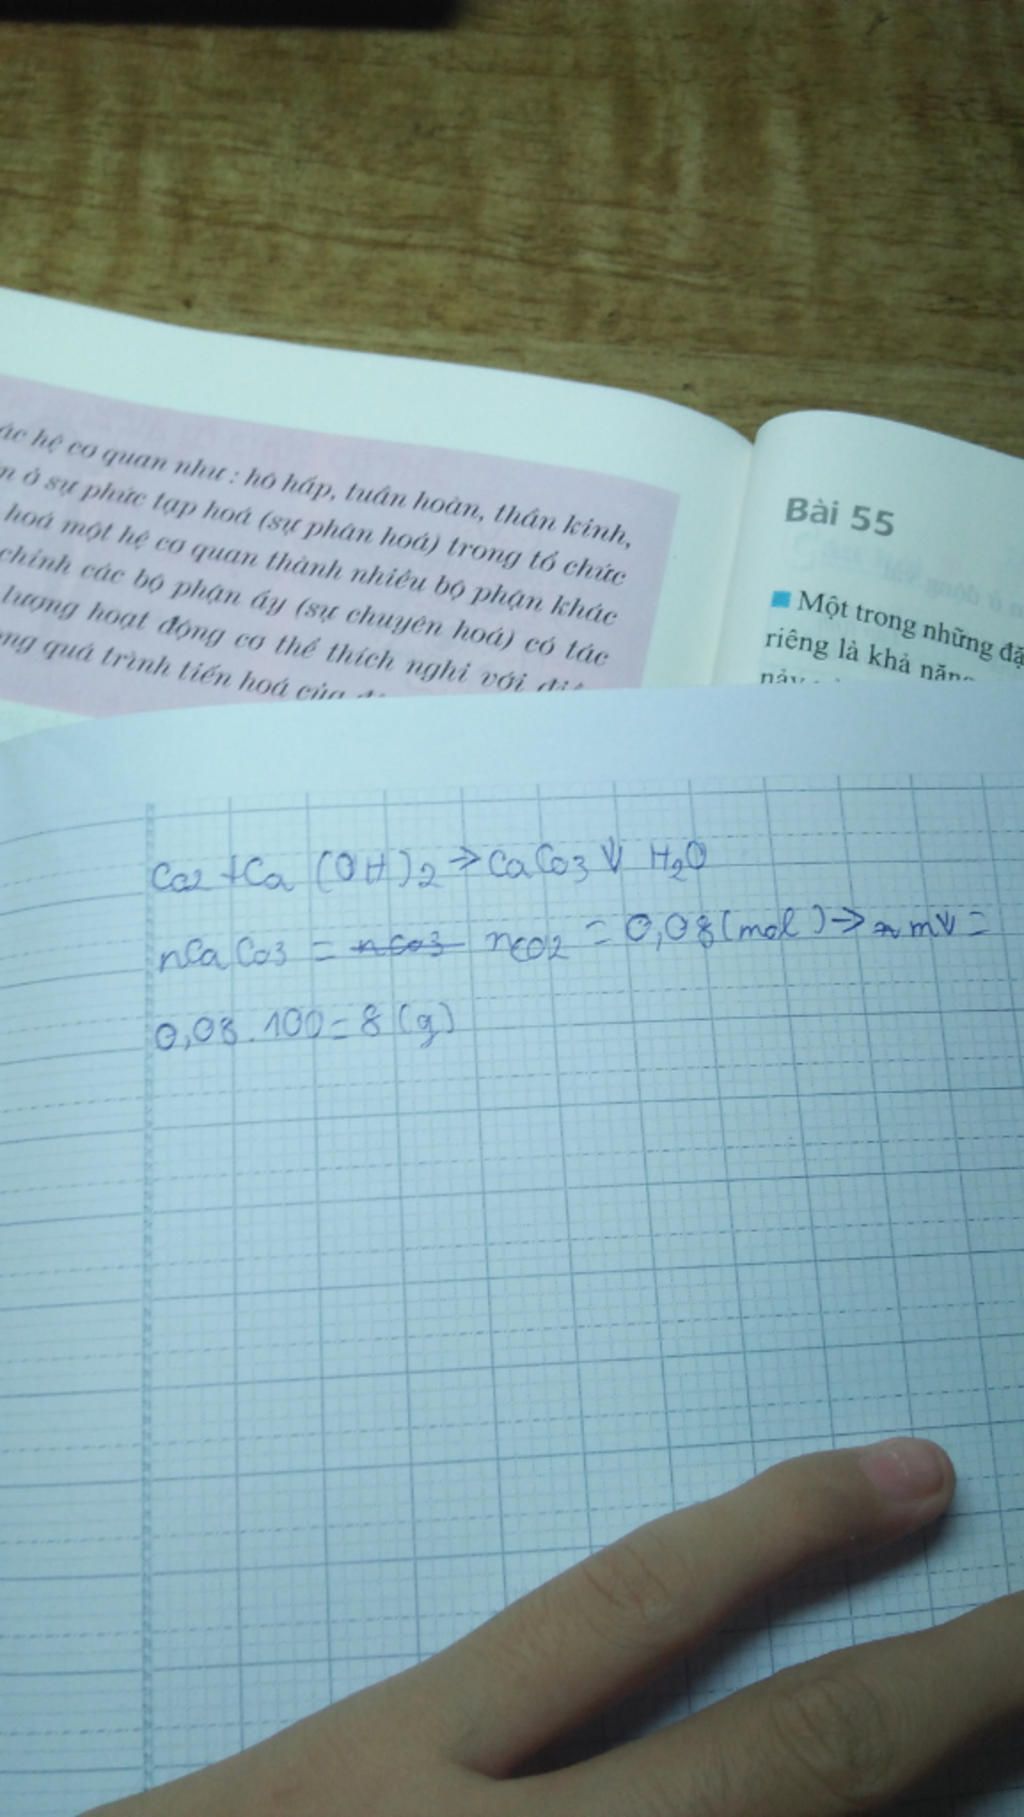 ác hệ cơ quan như : hô hấp, tuần hoàn, thần kinh,
n ở sự phức tạp hoá (sự phân hoá) trong tổ chức
hoá một hệ cơ quan thành nhiều bộ phận khác
chỉnh các bộ phận ấy (sự chuyên hoá) có tác
lượng hoạt động cơ thể thích nghi với
ng quá trình tiến hoá của
Bài 55
Một trong những đặ
riêng là khả năng
Co2 + Ca (OH)2 → CaCo3 ↓ H2O
nCaCo3 = nco3 nco2 = 0,08 (mol) → m↓ =
0,08 . 100 = 8 (g)